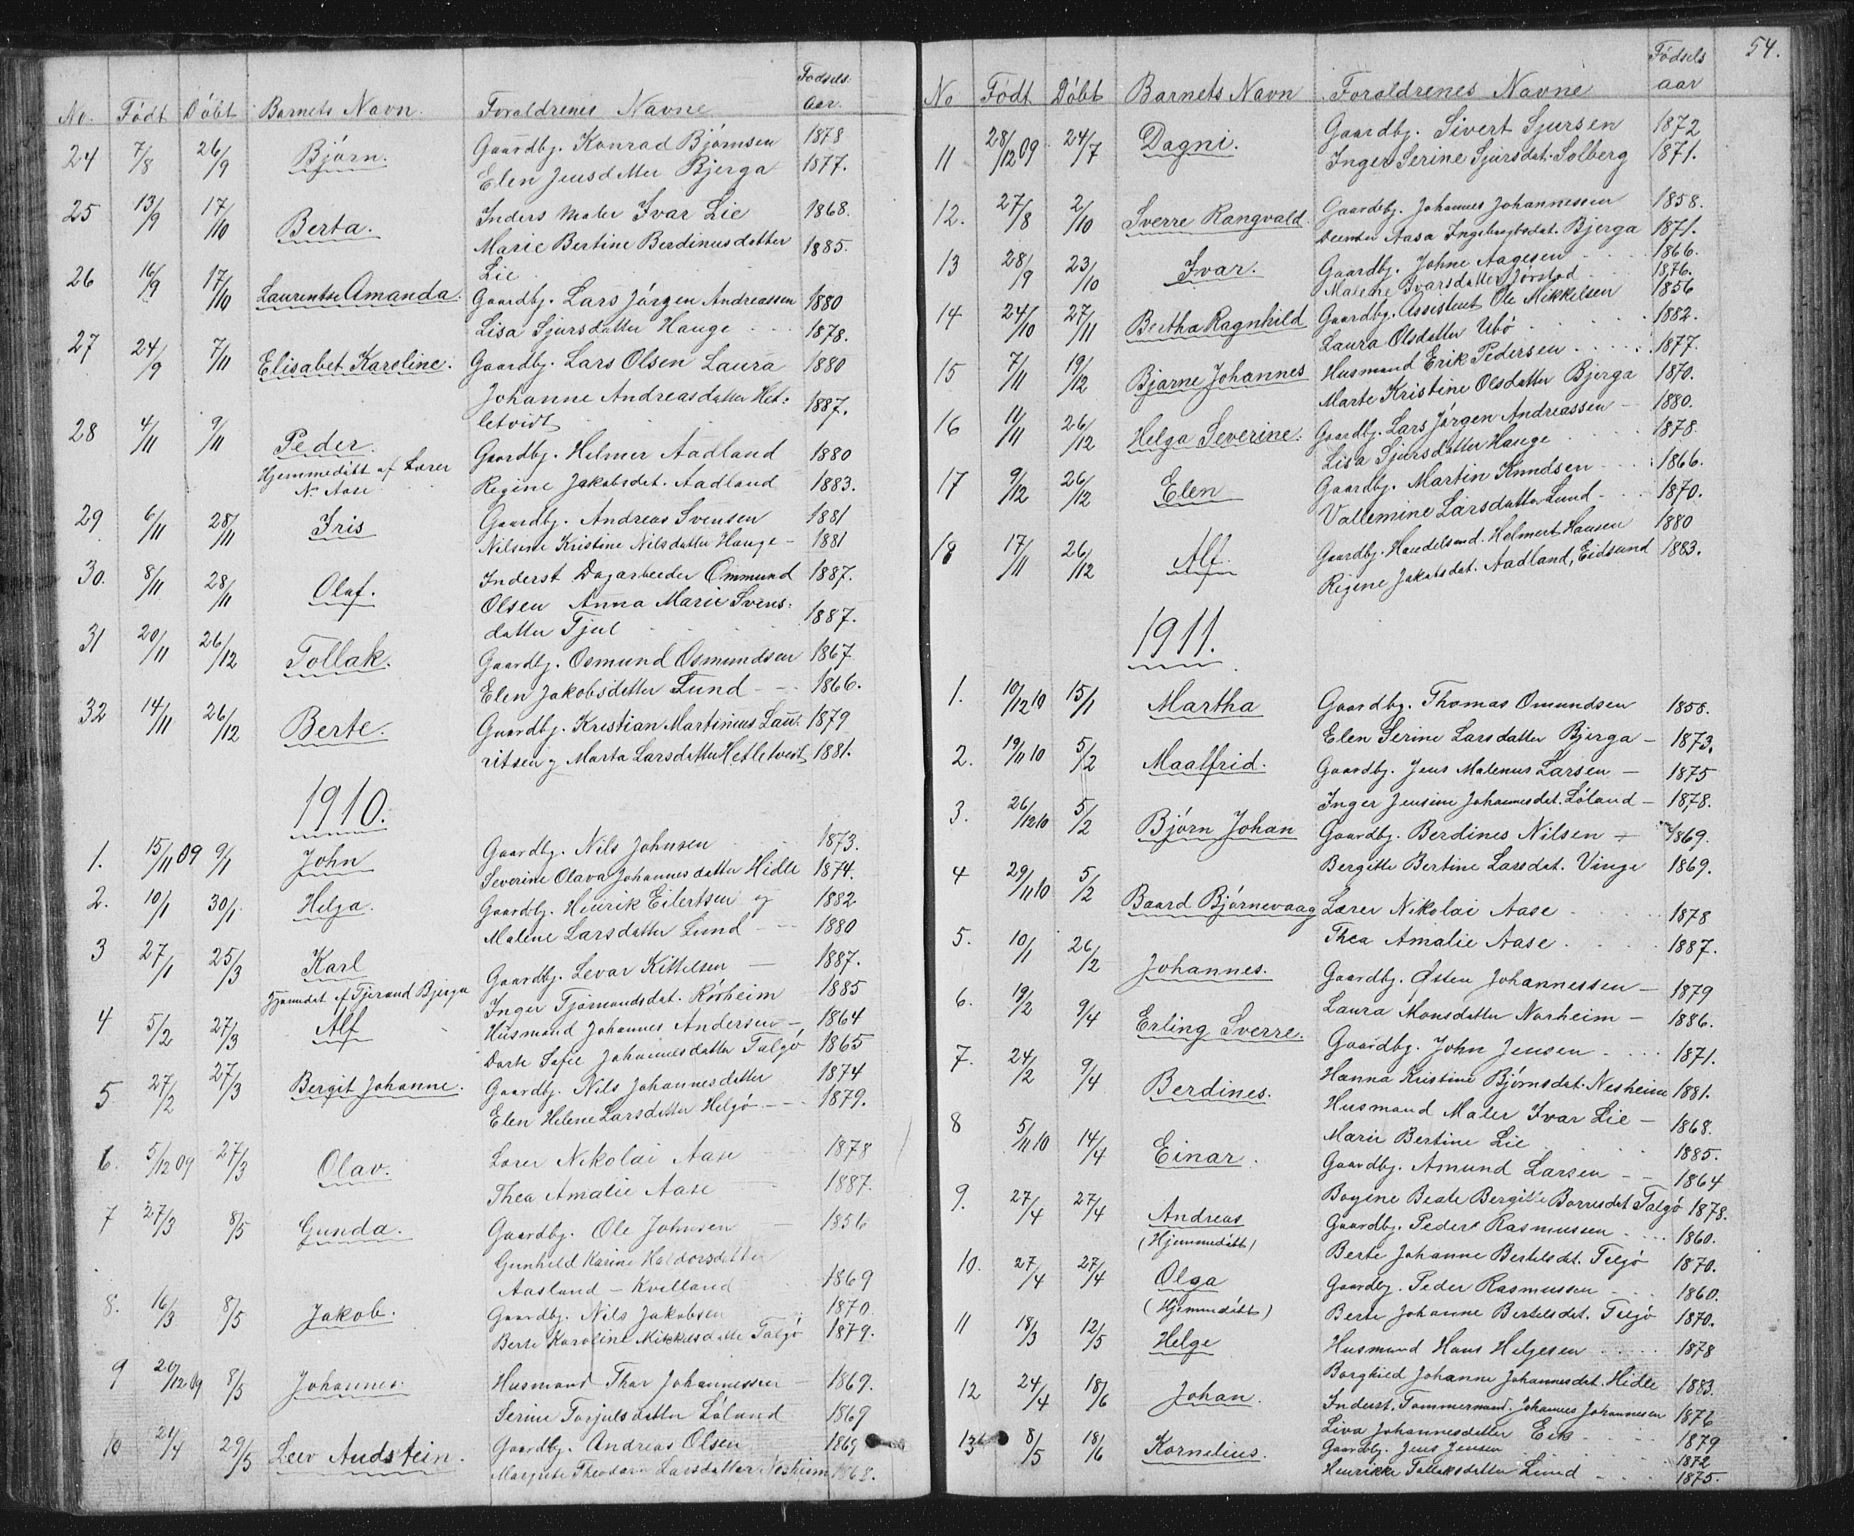 No. Født Døbt Barnets Navn. Foraldrenes Navne Fødsels aar.
24 7/8 26/9 Bjørn. Gaardbj. Konrad Bjørnsen 1878
Elen Jensdatter Bjerga 1877.
25 13/9 17/10 Berta. Inders Maler Ivar Lie 1868.
Marie Bertine Berdinusdatter 1885.
Lie
26 16/9 17/10 Laurentse Amanda. Gaardbj. Lars Jørgen Andreassen 1880
Lisa Sjursdatter Hauge 1878.
27 24/9 7/11 Elisabet Karoline. Gaardbj. Lars Olsen Laura 1880
Johanne Andreasdatter Het- 1887.
letvidt
28 4/11 9/11 Peder. Gaardbj. Helmer Aadland 1880
Hjemmedøbt af Lærer
N. Aase Regine Jakobsdat. Aadland 1883.
29 6/11 28/11 Iris Gaardbj. Andreas Svensen 1881
Nilsine Kristine Nilsdatter Hauge - 1881
30. 8/11 28/11 Olaf. Inderst Dagarbeider Ommund 1887.
Olsen Anna Marie Svens- 1887.
datter Tjul
31 20/11 26/12 Tollak. Gaardbj. Osmund Osmundsen 1867
Elen Jakobsdatter Lund 1866.
32 14/11 26/12 Berte. Gaardbj. Kristian Martinius Lau- 1879
ritsen og Marta Larsdatter Hetletvedt 1881.
1910.
1. 15/11 09 9/1 John Gaardbj. Nils Johnsen 1873.
Severine Olava Johannesdatter Hidle 1874.
2. 10/1 30/1 Helga. Gaardbj. Henrik Eilertsen og 1882
Malene Larsdatter Lund 1880
3 27/1 25/3 Karl Gaardbj. Levar Kittelsen 1887.
Hjemmdøt af Tjerand Bjerga Inger Tjørnandsdat. Rørheim 1885
4 5/2 27/3 Alf Husmand Johannes Andersen 1864
Dorte Sofie Johannesdatter Talgø 1865
5 27/2 27/3 Bergit Johanne. Gaardbj. Nils Johannesdatter 1874
Elen Helene Larsdatter Helgø 1879.
6. 5/12 09 27/3 Olav. Lærer Nikolai Aase 1878
Thea Amalie Aase 1887
7 27/3 8/5 Gunda. Gaardbj. Ole Johnsen 1856
Gunhild Karine Haldorsdatter
Aasland - Kvilland 1869
8. 16/3 8/5 Jakob. Gaardbj. Nils Jakobsen 1870
Berte Karoline Mikkelsdatte Talgø 1879.
9 20/12 09 8/5 Johannes. Husmand Thor Johannessen 1869.
Serine Torjulsdatter Løland 1869
10 21/4 29/5 Leiv Audstein. Gaardbj. Andreas Olsen 1869
Margrete Theodora Larsdatter Nesheim 1868.
54.
No Født Døbt Barnets Navn Foraldrenes Navne Fødsels aar
11 28/12 09 24/7 Dagni. Gaardbj. Sivert Sjursen 1872
Inger Serine Sjursdat. Solberg 1871.
12. 27/8 2/10 Sverre Rangvald. Gaardbj. Johannes Johannessen 1858.
Aasa Ingebrigtsdat. Bjerga 1871.
13 28/9 23/10 Ivar. Gaardbj. Johne Aagesen 1866.
Malene Ivarsdatter Jørstad 1876.
14 24/10 27/11 Bertha Ragnhild Gaardbj. Assistent Ole Mikkelsen 1856
Laura Olsdatter Ubø 1882.
15 7/11 19/12 Bjarne Johannes Husmand Erik Pedersen 1877.
Marte Kristine Olsdatter Bjerga 1870.
16 11/11 26/12 Helga Severine. Gaardbj. Lars Jørgen Andreassen 1880.
Lisa Sjursdatter Hauge 1878.
17 9/12 26/12 Elen Gaardbj. Martin Knudsen 1866.
Vallemine Larsdatter Lund 1870.
18 17/11 26/12 Alf. Gaardbj. Handelsmd. Helmert Hansen 1880
Rigene Jakobsdat. Aadland, Eidsund 1883.
1911.
1. 10/12 10 15/1 Martha Gaardbj. Thomas Omundsen 1858.
Elen Serine Larsdatter Bjerga 1873.
2. 19/11 10 5/2 Maalfrid. Gaardbj. Jens Malenus Larsen 1875
Inger Jensine Johannesdat. Løland 1878.
3. 26/12 10 5/2 Bjørn Johan Gaardbj. Berdines Nilsen 1869.
Bergitte Bertine Larsdat. Vinge 1869.
4 29/11 10 5/2 Baard Bjørnevaag Lærer Nikolai Aase 1878
Thea Amalie Aase 1887.
5. 10/1 26/2 Johannes. Gaardbj. Østen Johannessen 1879
Laura Monsdatter Norheim 1886.
6. 19/2 9/4 Erling Sverre. Gaardbj. John Jensen 1871.
Hanna Kristine Bjørnsdat. Nesheim 1881.
7. 24/2 9/4 Berdines. Husmand Maler Ivar Lie 1868.
Marie Bertine Lie 1885.
8 5/11 10 14/4 Einar. Gaardbj. Amund Larsen 1864
Boyene Beate Bergitte Borresdat Talgø 1878.
9. 27/4 27/4 Andreas Gaardbj. Peder Rasmussen 1860.
(Hjemmedøbt) Berte Johanne Bertelsdat. Talgø 1870.
10. 27/4 27/4 Olga Gaardbj. Peder Rasmussen 1860.
(Hjemmedøbt) Berte Johanne Bertelsdat. Talgø 1870.
11 18/3 12/5 Helge Husmand Hans Helgesen 1878
Borghild Johanne Johannesdat. Hidle 1883.
12 24/4 18/6 Johan. Inderst. Tømmermand. Johannes Johannesen 1876
Liva Johannesdatter Eik 1879
13 8/5 18/6 Kornelius. Gaardbj. Jens Jensen 1872
Henrikke Tollaksdatter Lund 1875.